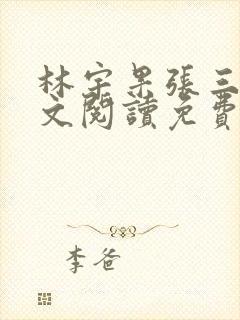 林宇果張三
文閱讀免費
李爸